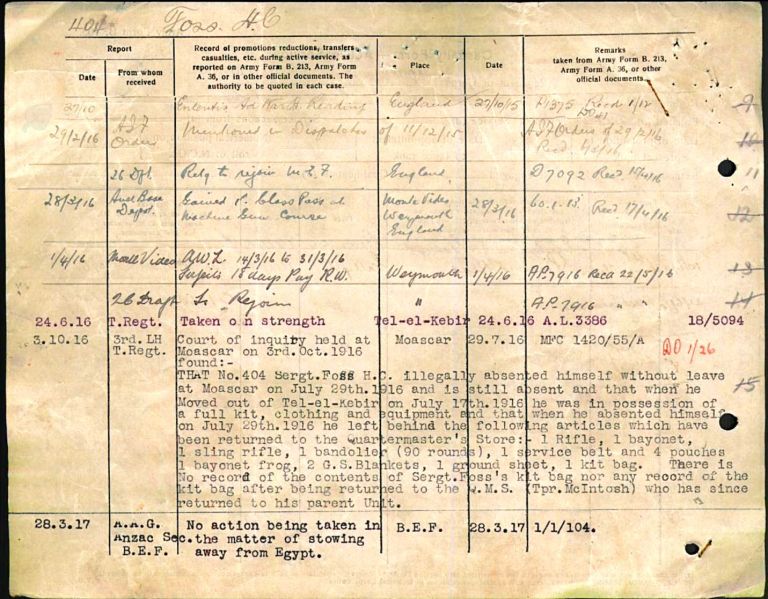 404 Foss. H.C
Report
Record of promotions reductions, transfers, casualties, etc. during active service, as reported on Army Form B. 213, Army Form A. 36, or in other official documents. The authority to be quoted in each case.
Place
Date
Remarks taken from Army Form B. 213, Army Form A. 36, or other official documents.
Date
From whom received
27/10 War H. Reading England 27/10/15 1375 Recd 1/12 9
29/2/16 AIF Orders Mentioned in Dispatches of 11/12/15 AIF Orders of 29/2/16 10
Recd
26 Dft. to rejoin M.E.F. England D7092 Recd 11
28/3/16 Aust Base Depot. Gained 1st Class Pass at Machine Gun Course Monte Video Weymouth England 28/3/16 60.1.13 Recd 17/4/16 12
1/4/16 Monte Video A.W.L. 14/3/16 to 31/3/16
Forfeits 18 days Pay R.W. Weymouth 1/4/16 A.P.7916 Recd 22/5/16 13
26 Draft To Rejoin " A.P.7916 " " 14
24.6.16 T.Regt. Taken o n strength Tel-el-Kebir 24.6.16 A.L.3386 18/5094
3.10.16 3rd. LH Court of inquiry held at Moascar 29.7.16 MFC 1420/55/A
T.Regt. Moascar on 3rd.Oct.1916 DO 1/26
found:-
THAT No.404 Sergt.Foss H.C. illegally absented himself without leave
at Moascar on July 29th.1916 and is still absent and that when he 15
Moved out of Tel-el-Kebir on July 17th.1916 he was in possession of
a full kit, clothing and equipment and that when he absented himself
on July 29th.1916 he left behind the following articles which have
been returned to the Quartermaster's Store:- 1 Rifle, 1 bayonet,
1 sling rifle, 1 bandolier (90 rounds), 1 service belt and 4 pouches
1 bayonet frog, 2 G.S.Blankets, 1 ground sheet, 1 kit bag. There is
No record of the contents of Sergt.Foss's kit bag nor any record of the
kit bag after being returned to the Q.M.S. (Tpr.McIntosh) who has since
returned to his parent Unit.
28.3.17 A.A.G. No action being taken in B.E.F. 28.3.17 1/1/104.
Anzac Sec. the matter of stowing
B.E.F. away from Egypt.